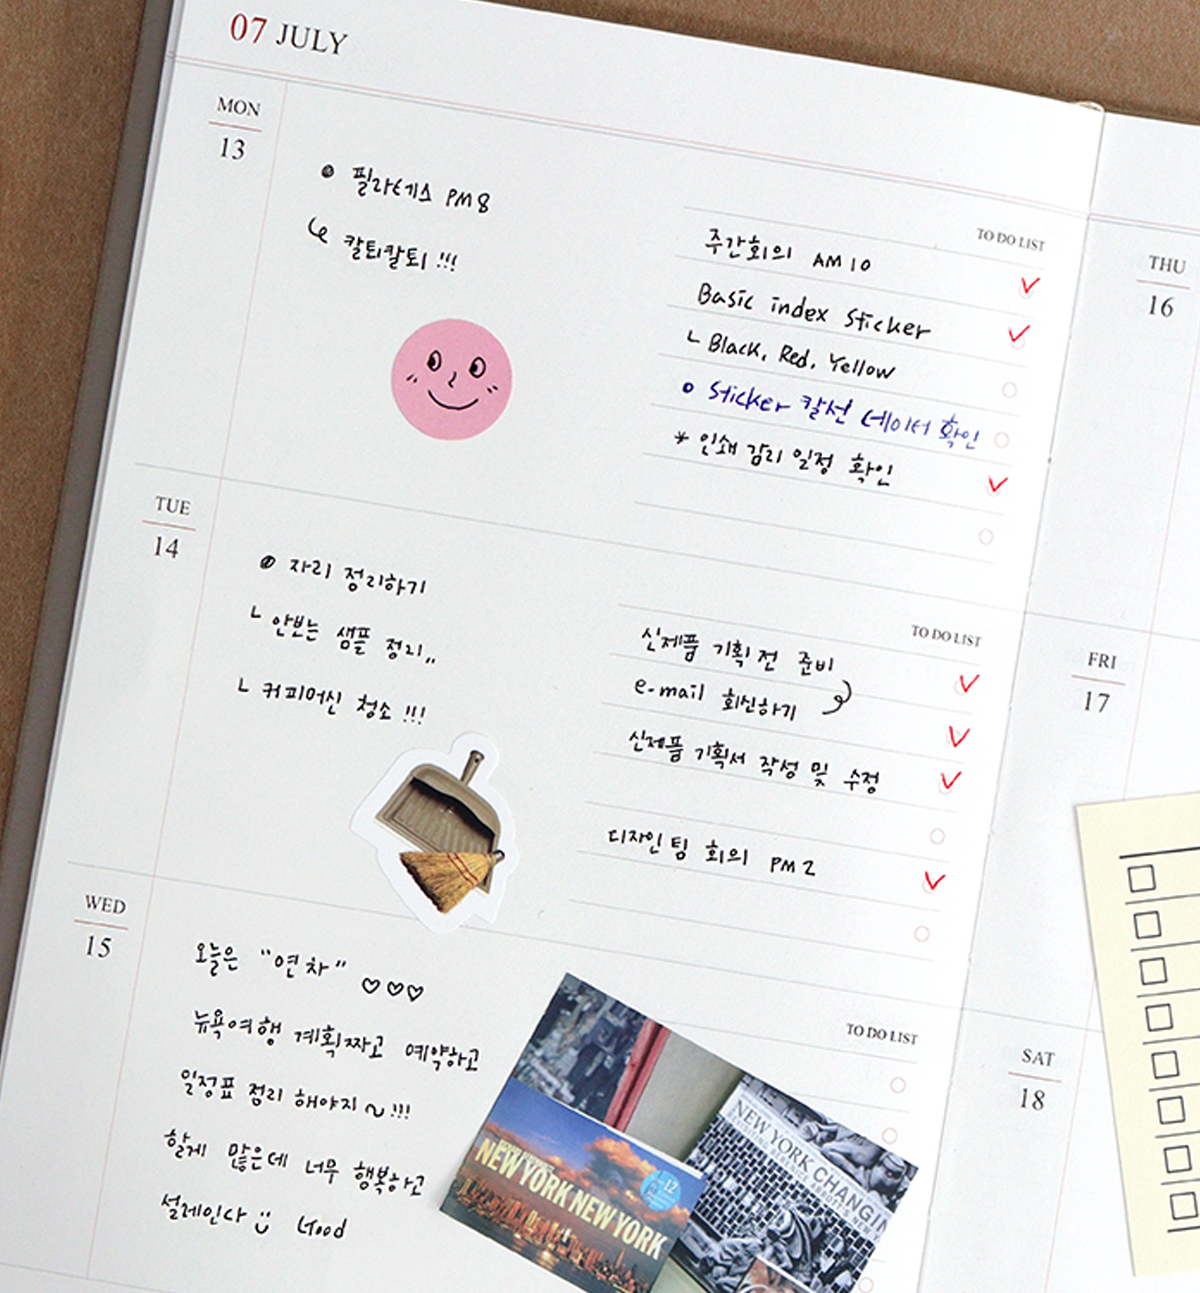 07 JULY
MON
13
필라테스 PM 8
칼퇴칼퇴 !!!
TO DO LIST
주간회의 AM 10
Basic index sticker
ㄴ Black, Red, Yellow
Sticker 칼선 데이터 확인
* 인쇄 감리 일정 확인
TUE
14
자리 정리하기
ㄴ 안보는 샘플 정리,,
ㄴ 커피머신 청소 !!!
TO DO LIST
신제품 기획전 준비
e-mail 회신하기
신제품 기획서 작성 및 수정
디자인팀 회의 PM 2
WED
15
오늘은 "연차" ♡♡♡
뉴욕여행 계획짜고 예약하고
일정표 정리 해야지~!!!
할게 많은데 너무 행복하고
설레인다 Good
TO DO LIST
NEW YORK NEW YORK
12
NEW YORK CHANGIN
THU
16
FRI
17
SAT
18